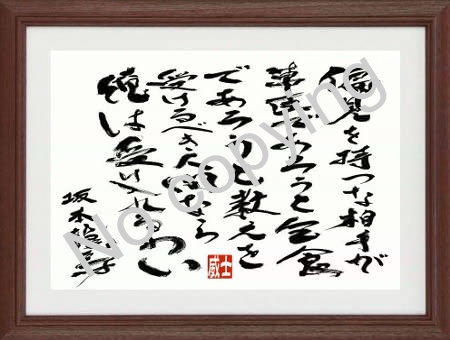 偏見を持つな相手が
幕臣であろうと乞食
であろうと教えを
受けるべき人間なら
俺は受け入れるわい
坂本龍馬
士威
No copying